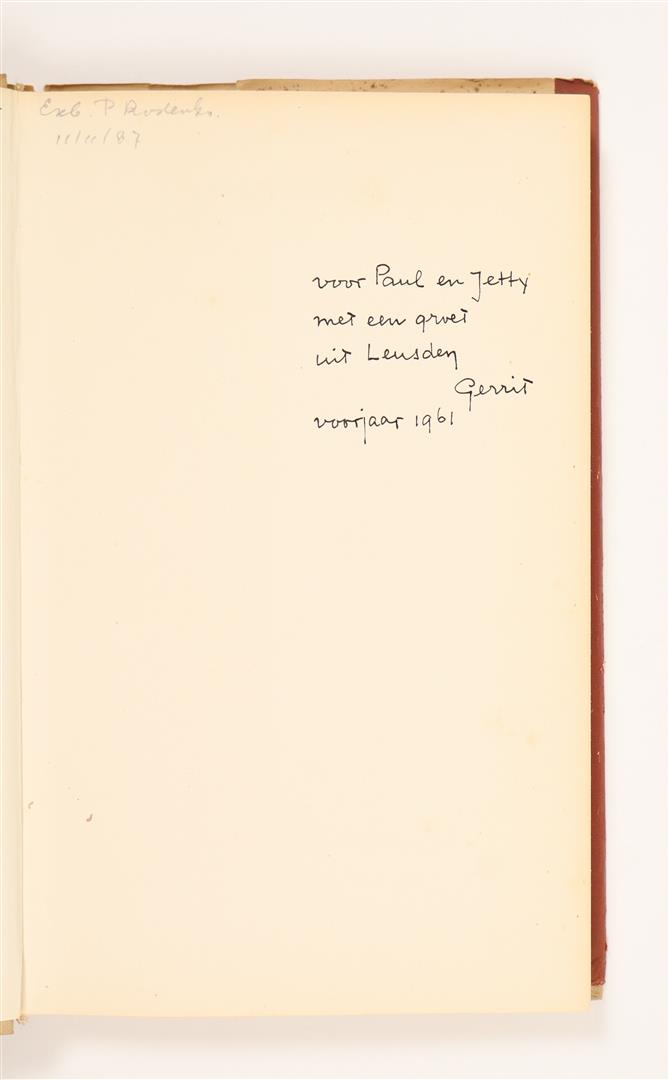 Exb. P. Rodenko.
11/11/87
voor Paul en Jetty
met een groet
uit Leusden
Gerrit
voorjaar 1961